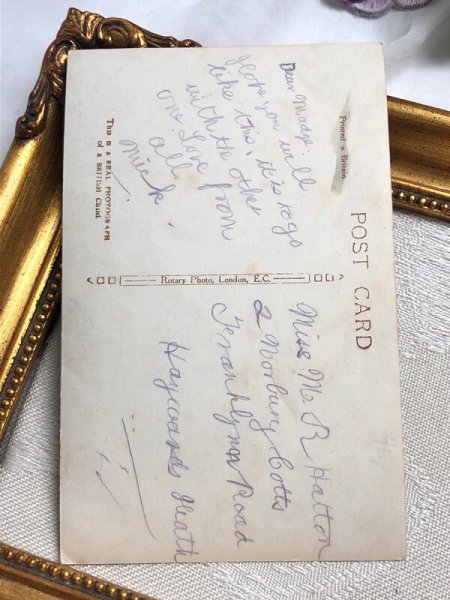 POST CARD
Printed Britain.
Dear Madge.
I hope you will
like this, it is
with th other
one Love from
all
Mick.
This is a REAL PHOTOGRAPH
of a BRITISH Child.
Rotary Photo, London, E.C.
Miss M R Hatton
2 Norbury Cotts
Franklynn Road
Haywards Heath